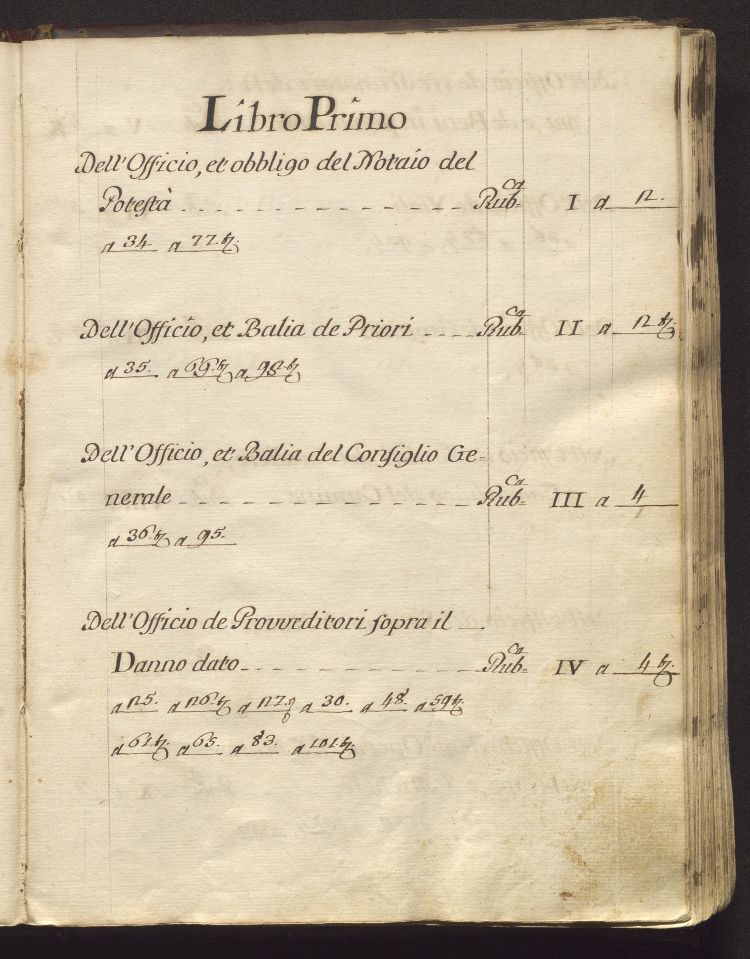 Libro Primo
Dell'Officio, et obbligo del Notaio del
Potestà Rub.ca I a 12.
a 34. a 77.t.
Dell'Officio, et Balìa de Priori Rub.ca II a 12 t.
a 35. a 66.t. a 98.t.
Dell'Officio, et Balia del Consiglio Ge-
nerale Rub.ca III a 4
a 36.t. a 95.
Dell'Officio de Provveditori sopra il
Danno dato Rub.ca IV a 4 t.
a 125. a 126.t. a 127. a 30. a 48. a 59 t.
a 61 t. a 65. a 83. a 101 t.